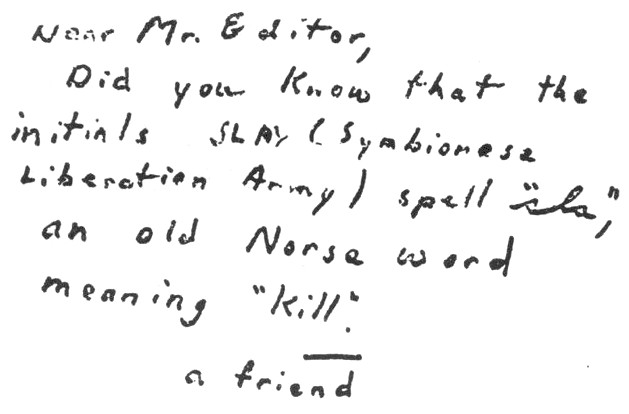 Dear Mr. Editor,
Did you know that the
initials SLAY (Symbionese
Liberation Army) spell "sla,"
an old Norse word
meaning "kill".
a friend